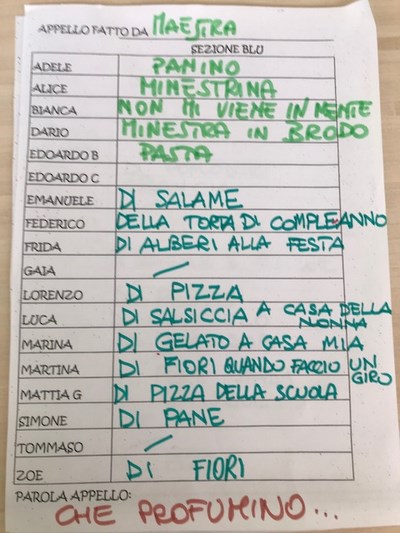 APPELLO FATTO DA MAESTRA
SEZIONE BLU
ADELE PANINO
ALICE MINESTRINA
BIANCA NON MI VIENE IN MENTE
DARIO MINESTRA IN BRODO
EDOARDO B PASTA
EDOARDO C
EMANUELE DI SALAME
FEDERICO DELLA TORTA DI COMPLEANNO
FRIDA DI ALBERI ALLA FESTA
GAIA /
LORENZO DI PIZZA
LUCA DI SALSICCIA A CASA DELLA
NONNA
MARINA DI GELATO A CASA MIA
MARTINA DI FIORI QUANDO FACCIO UN
GIRO
MATTIA G DI PIZZA DELLA SCUOLA
SIMONE DI PANE
TOMMASO /
ZOE DI FIORI
PAROLA APPELLO:
CHE PROFUMINO...